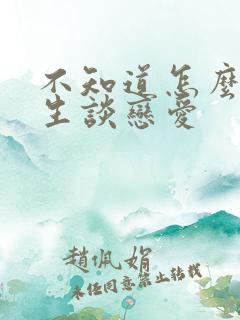 不知道怎麼
生談戀愛
趙佩娟
未任同意禁止转载